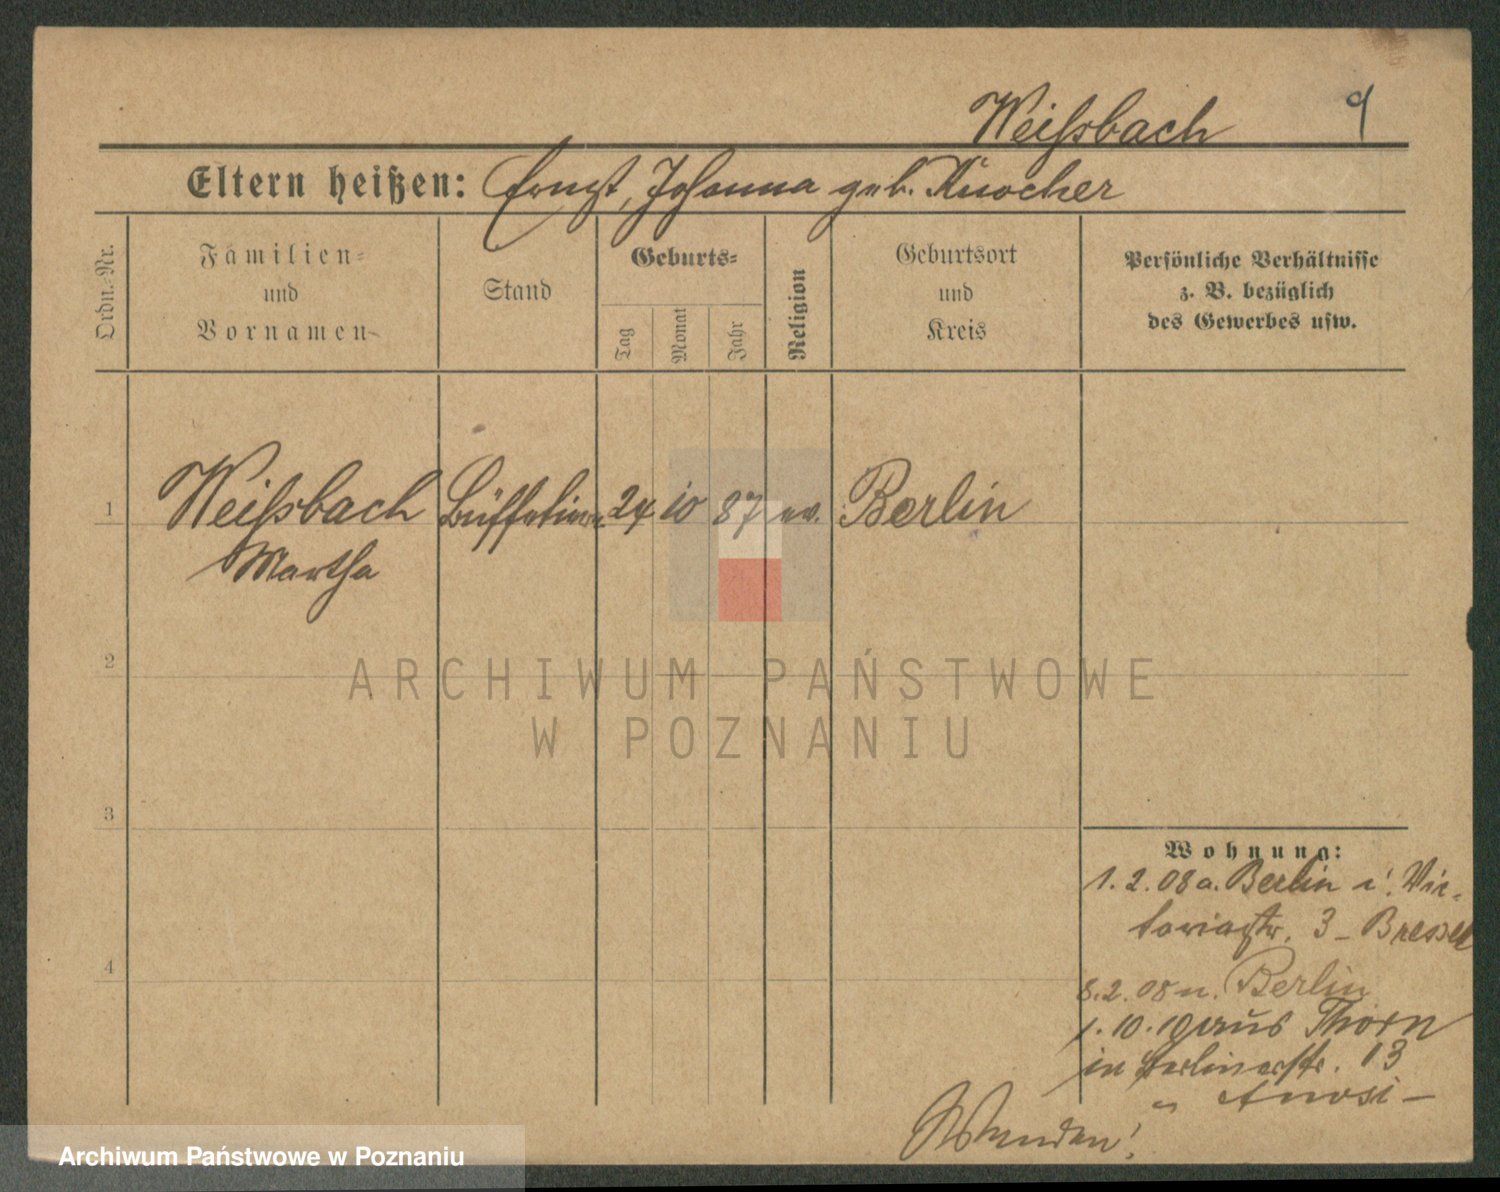 Weißbach 9
Eltern heißen: Ernst, Johanna geb. Knocher
Ordn.-Nr.
Familien-
und
Vornamen
Stand
Geburts-
Tag
Monat
Jahr
Religion
Geburtsort
und
Kreis
Persönliche Verhältnisse
z. B. bezüglich
des Gewerbes usw.
1 Weißbach Büffetiere 24 10 87 ev. Berlin
Martha
2
ARCHIWUM PAŃSTWOWE
W POZNANIU
3
Wohnung:
1. 2. 08 a. Berlin i. Vic-
toriastr. 3 -
4
8. 2. 08 n. Berlin
1. 10. aus Thorn
in Berlinerstr. 13
Wenden!
Archiwum Państwowe w Poznaniu